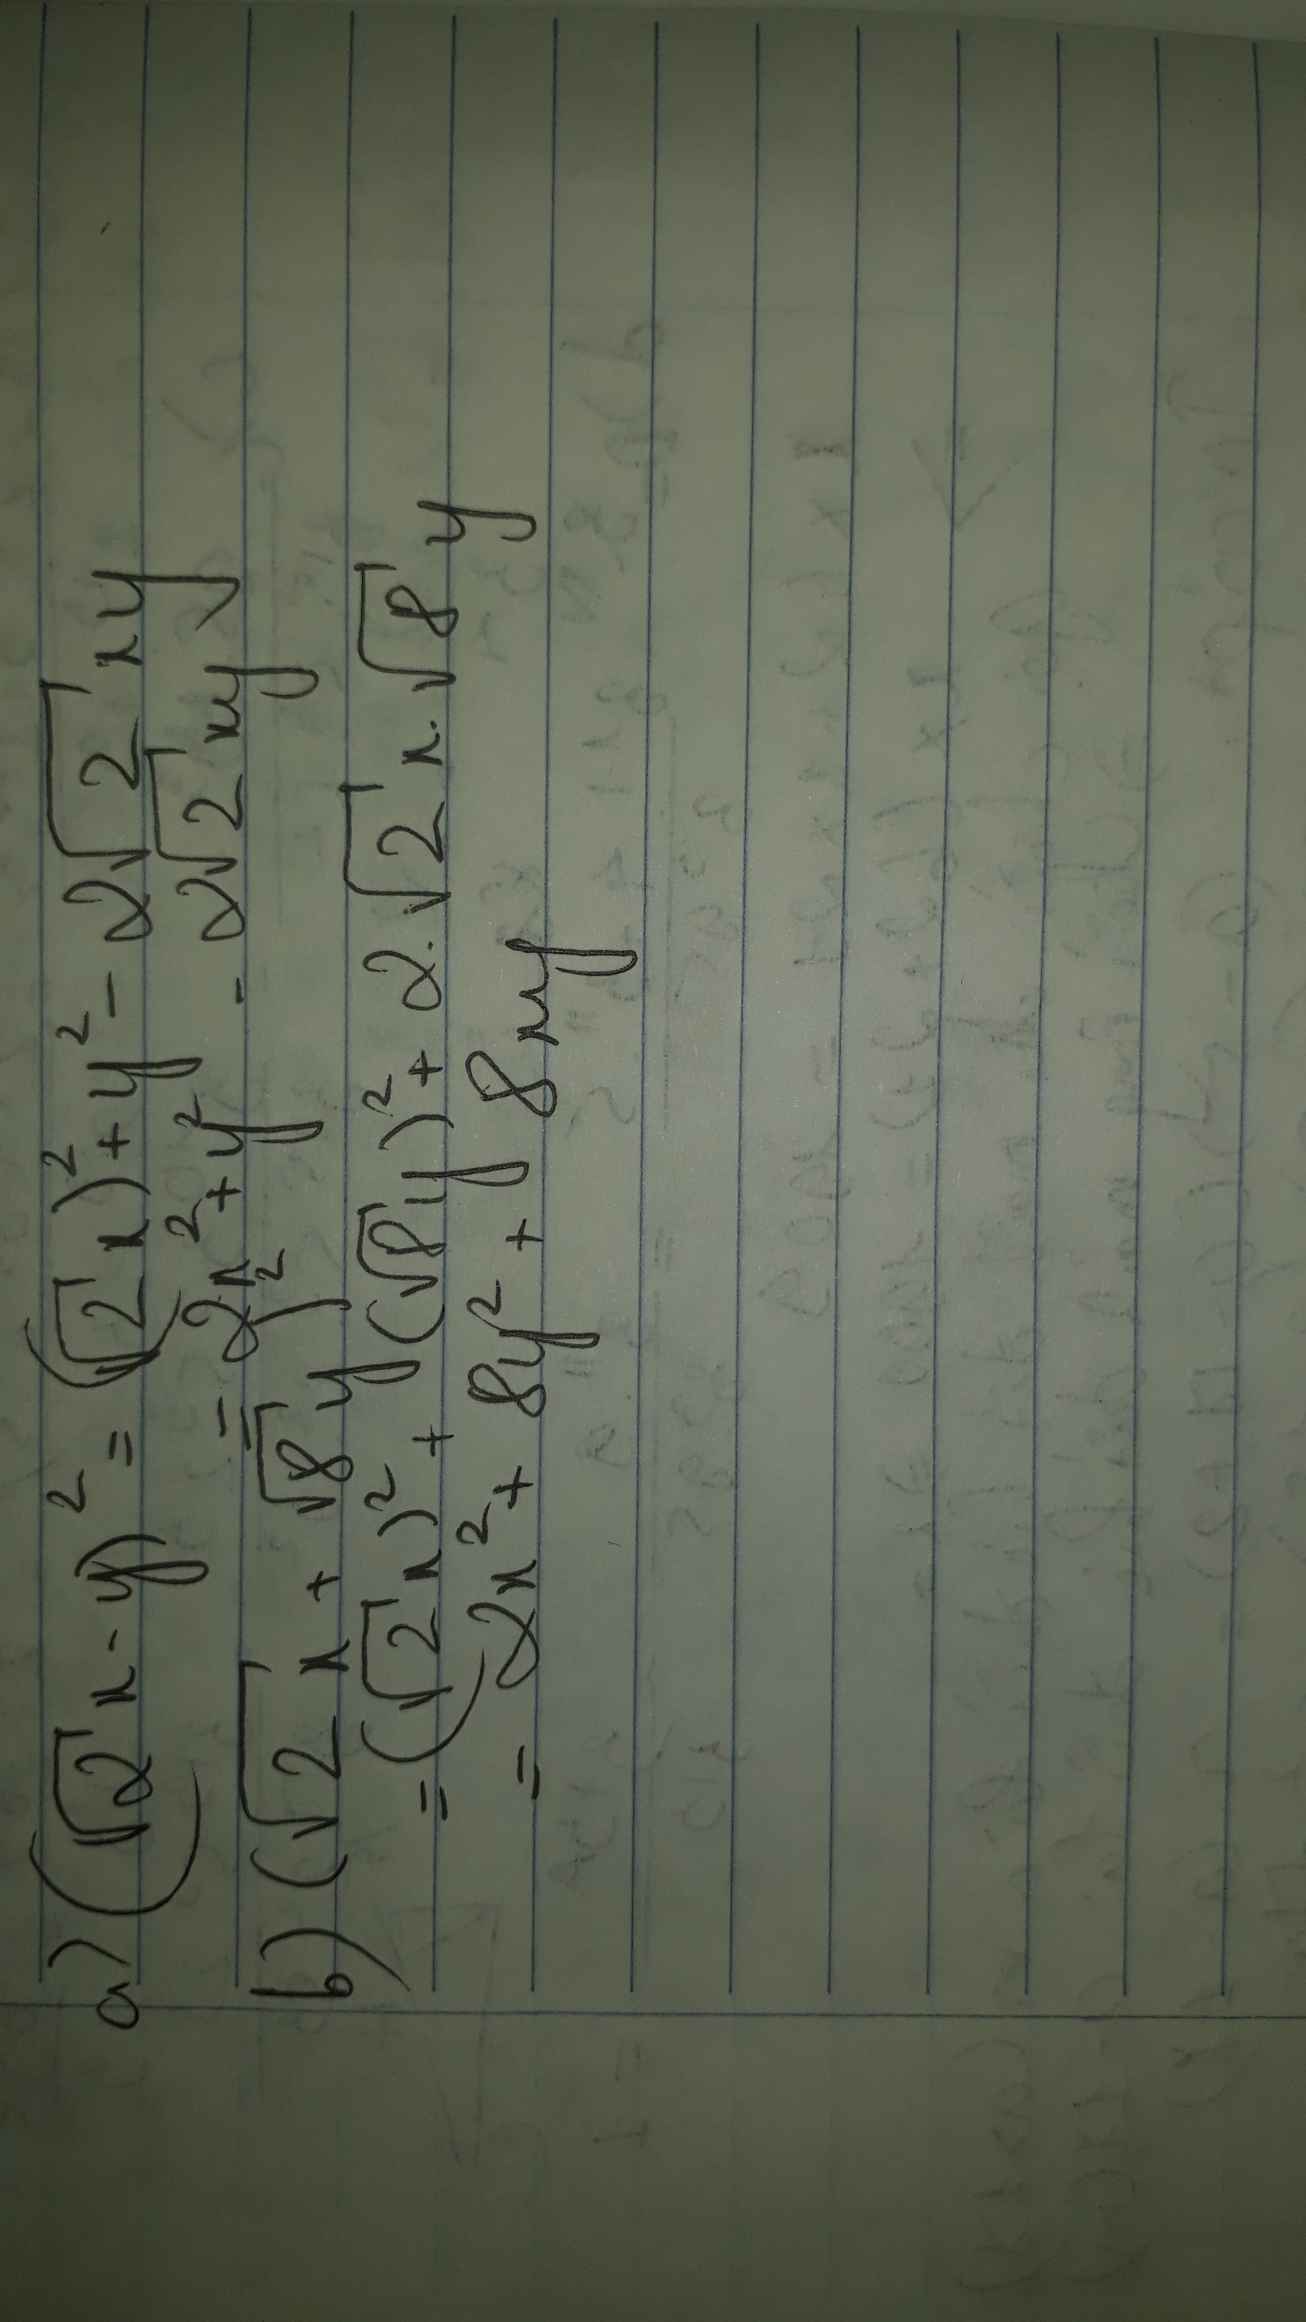 a) (√2 x - y)² = (√2 x)² + y² - 2√2 xy
= 2x² + y² - 2√2 xy
b) (√2 x + √8 y)²
= (√2 x)² + (√8 y)² + 2.√2 x.√8 y
= 2x² + 8y² + 8xy